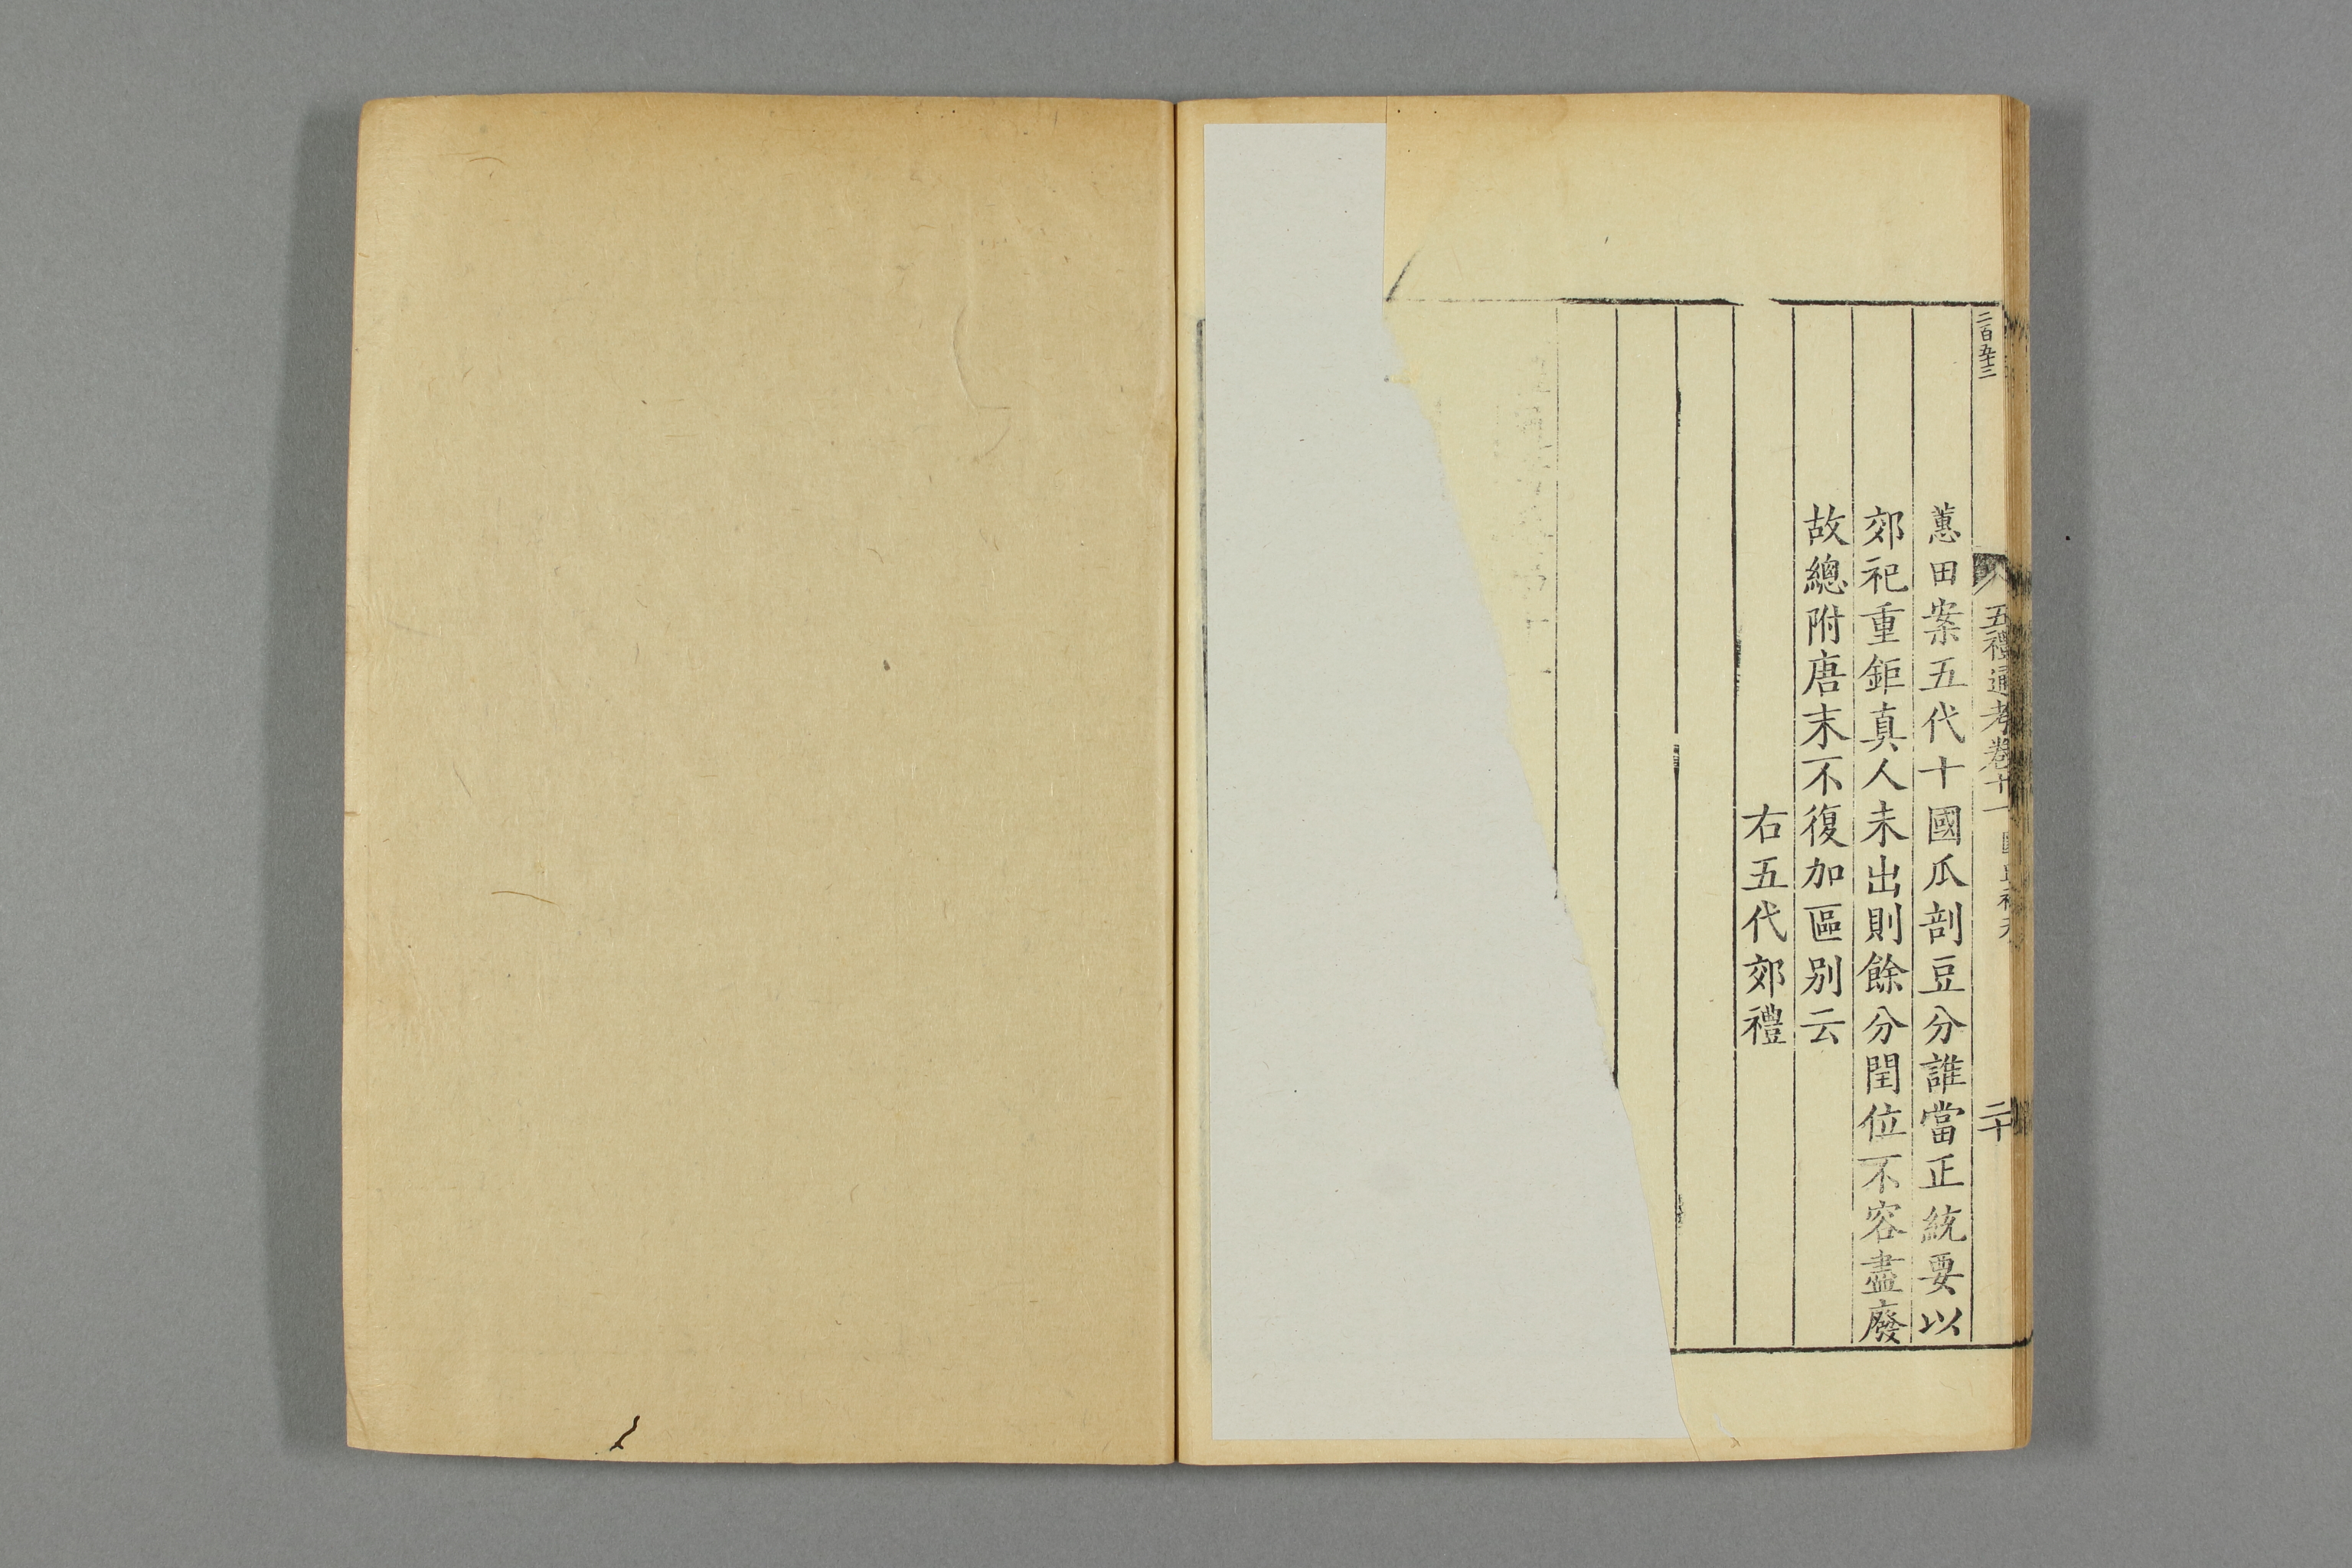 二百五十三
五禮通考卷十一
二十
蕙田案五代十國瓜剖豆分誰當正統要以
郊祀重鉅真人未出則餘分閏位不容盡廢
故總附唐末不復加區别云
右五代郊禮